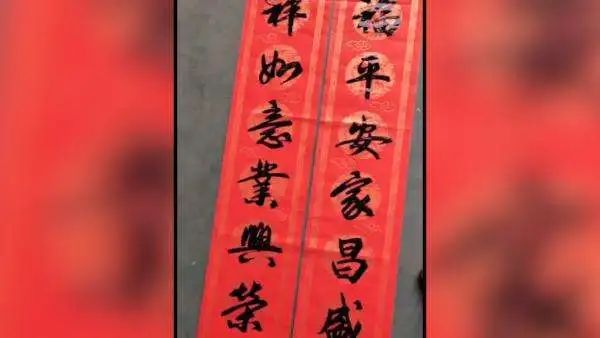 福平安家昌盛
祥如意業興榮